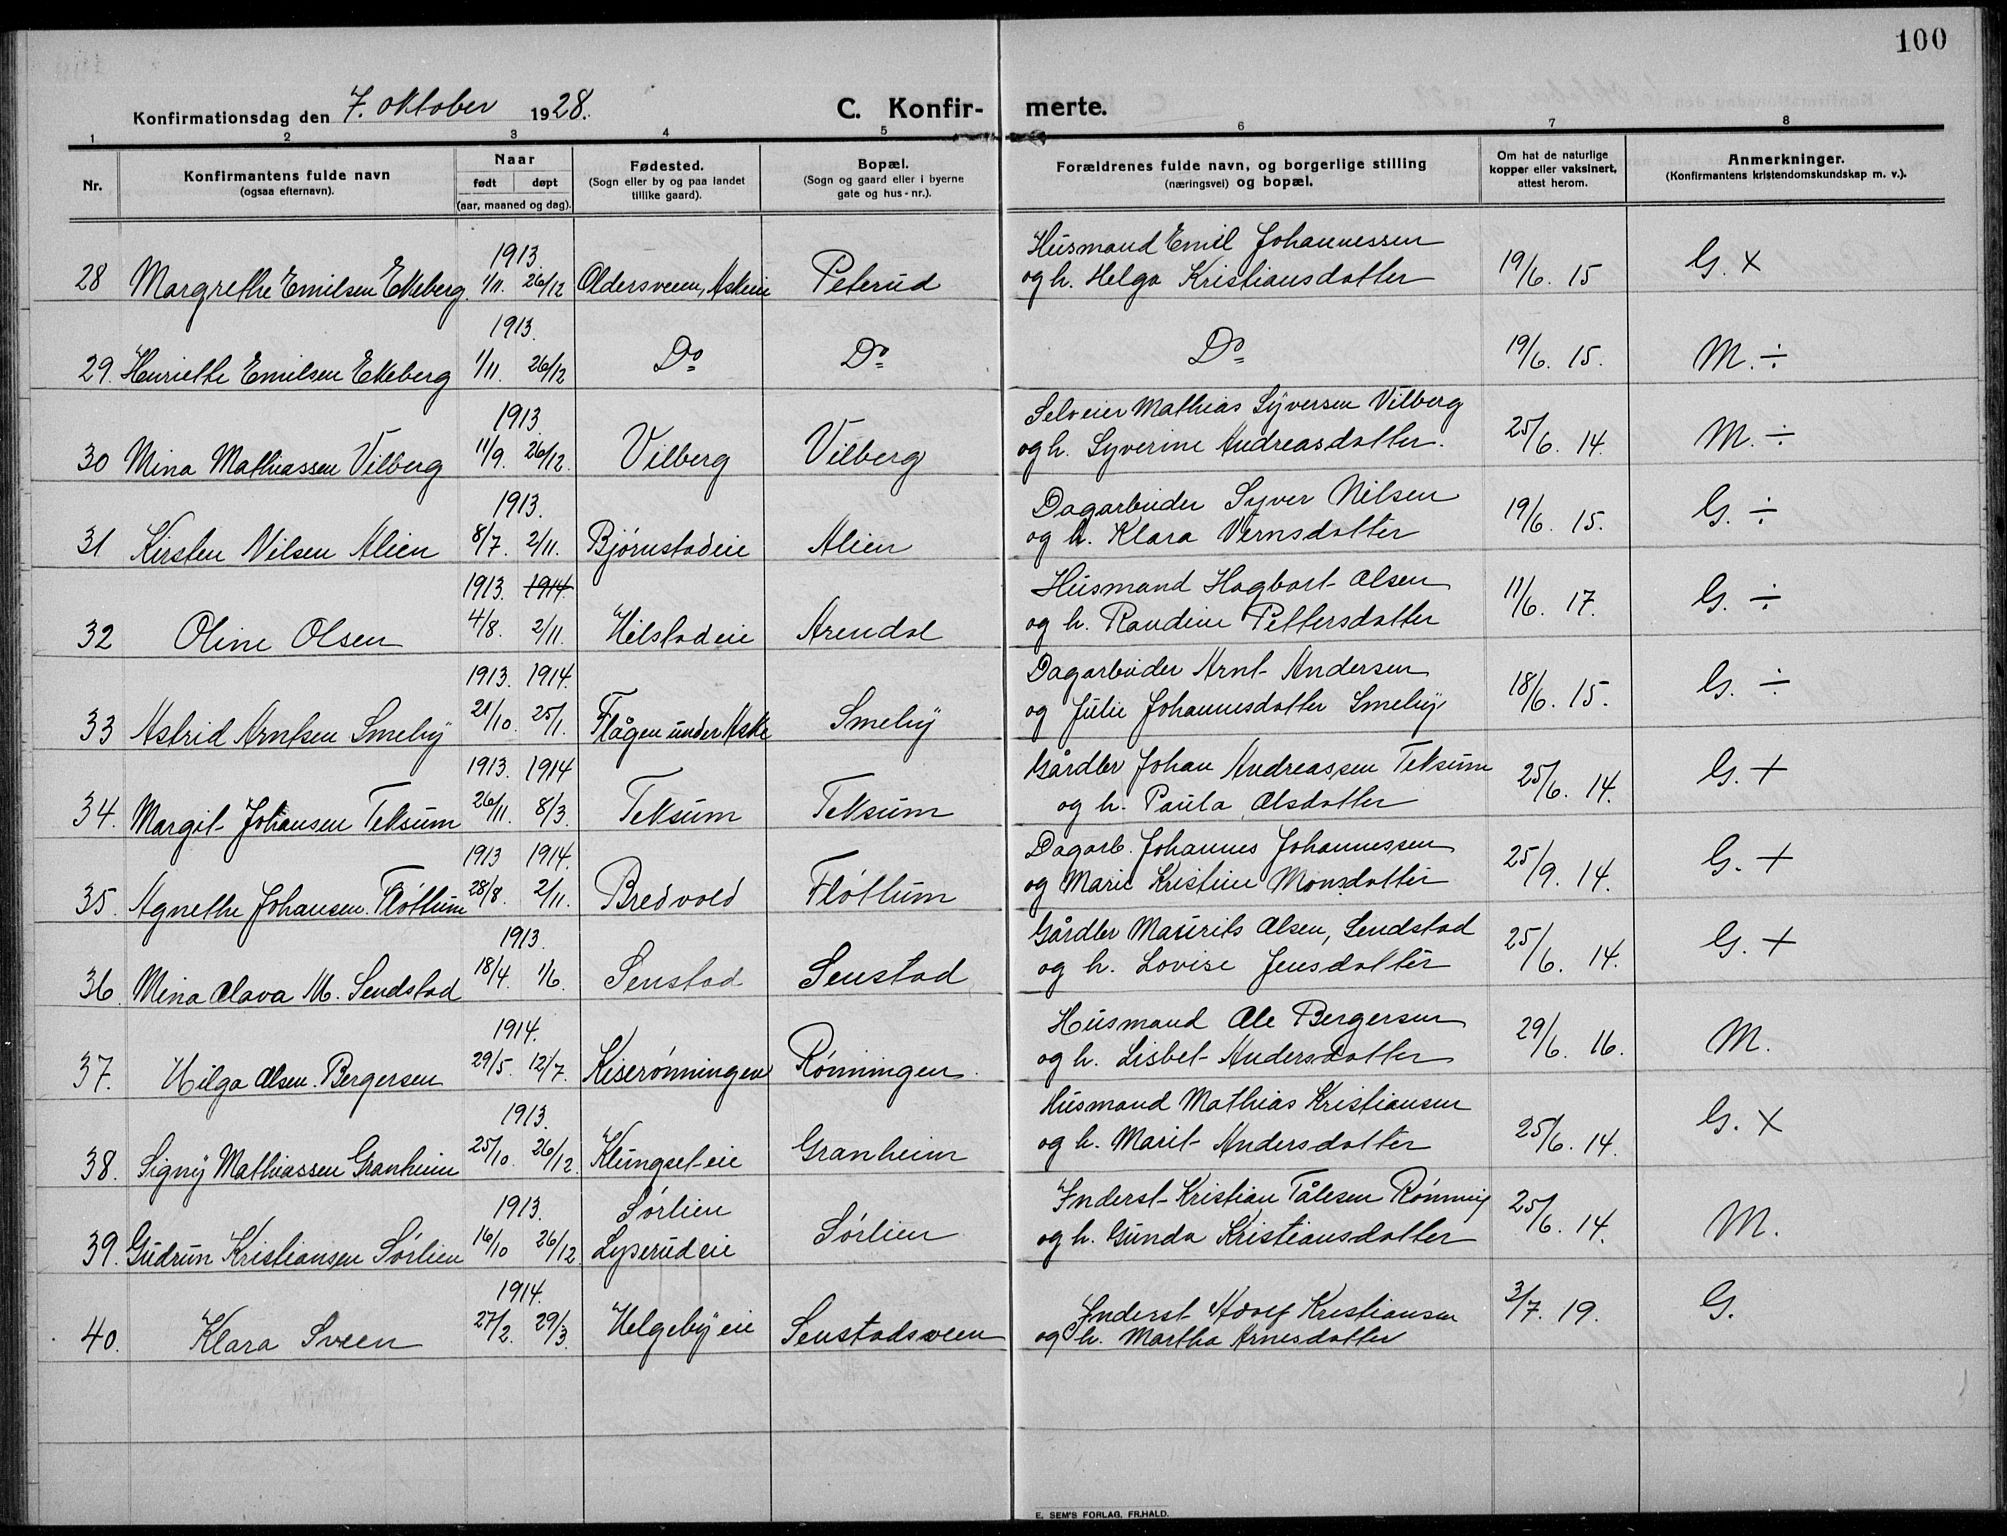 100
Konfirmationsdag den 7. oktober 1928.
C. Konfirmerte.
1 2 3 4 5 6 7 8
Nr.
Konfirmantens fulde navn
(ogsaa efternavn).
Naar
født døpt
(aar, maaned og dag).
Fødested.
(Sogn eller by og paa landet
tillike gaard).
Bopæl.
(Sogn og gaard eller i byerne
gate og hus-nr.).
Forældrenes fulde navn, og borgerlige stilling
(næringsvei) og bopæl.
Om hat de naturlige
kopper eller vaksinert,
attest herom.
Anmerkninger.
(Konfirmantens kristendomskundskap m. v.).
1913. Husmand Emil Johannessen
28 Margrethe Emilsen Ekeberg. 1/11. 26/12 Oldersveen, Askeie Peterud og h. Helga Kristiansdatter 19/6. 15 G. X
1913.
29. Henriette Emilsen Ekeberg 1/11. 26/12 Do Do Do 19/6. 15. M. ÷
1913. Selveier Mathias Syversen Vilberg
30 Mina Mathiassen Vilberg 11/9. 26/12. Vilberg Vilberg og h. Syverine Andreasdatter. 25/6. 14. M. ÷
1913. Dagarbeider Syver Nilsen
31 Kirsten Nilsen Alien 8/7. 2/11. Bjørnstadeie Alien og h. Klara Vernsdatter 19/6. 15. G. ÷
1913. 1914. Husmand Hagbart Olsen
32 Oline Olsen 4/8. 2/11. Hilstadeie Arendal og h. Randine Pettersdatter 11/6. 17. G. ÷
1913. 1914. Dagarbeider Arnt Andersen
33 Astrid Arntsen Smeby 21/10. 25/1. Flågen under Aske Smeby og Julie Johannesdatter Smeby 18/6. 15. G. ÷
1913. 1914 Gårdbr Johan Andreassen Teksum
34. Margit Johansen Teksum 26/11. 8/3. Teksum Teksum og h. Paula Olsdatter 25/6. 14. G. +
1913 1914. Dagarb. Johannes Johannessen
35. Agnethe Johansen Fløttum 28/8. 2/11. Bredvold Fløttum og Marie Kristine Monsdatter 25/9. 14. G. +
1913. Gårdbr Maurits Olsen, Sendstad
36. Mina Olava M. Sendstad 18/4. 1/6. Senstad Senstad og h. Lovise Jensdatter 25/6. 14. G. +
1914. Husmand Ole Bergersen
37. Hilga Olsen. Bergersen 29/5. 12/7. Kiserønningen Rønningen og h. Lisbet Andersdatter 29/6. 16. M.
1913. Husmand Mathias Kristiansen
38. Signy Mathiassen Granheim 25/10. 26/12. Klungset eie Granheim og h. Marit Andersdatter 25/6. 14. G. X
1913. Sørlien Inderst Kristian Tålesen Rønning
39. Gudrun Kristiansen Sørlien 16/10 26/12. Lyserudeie Sørlien og h. Gunda Kristiansdatter 25/6. 14. M.
1914. Inderst Adolf Kristiansen
40. Klara Sveen 27/2. 29/3. Helgebyeie Senstadsveen og h. Martha Arnesdatter 3/7. 19. G.
E. SEM'S FORLAG, FR.HALD.